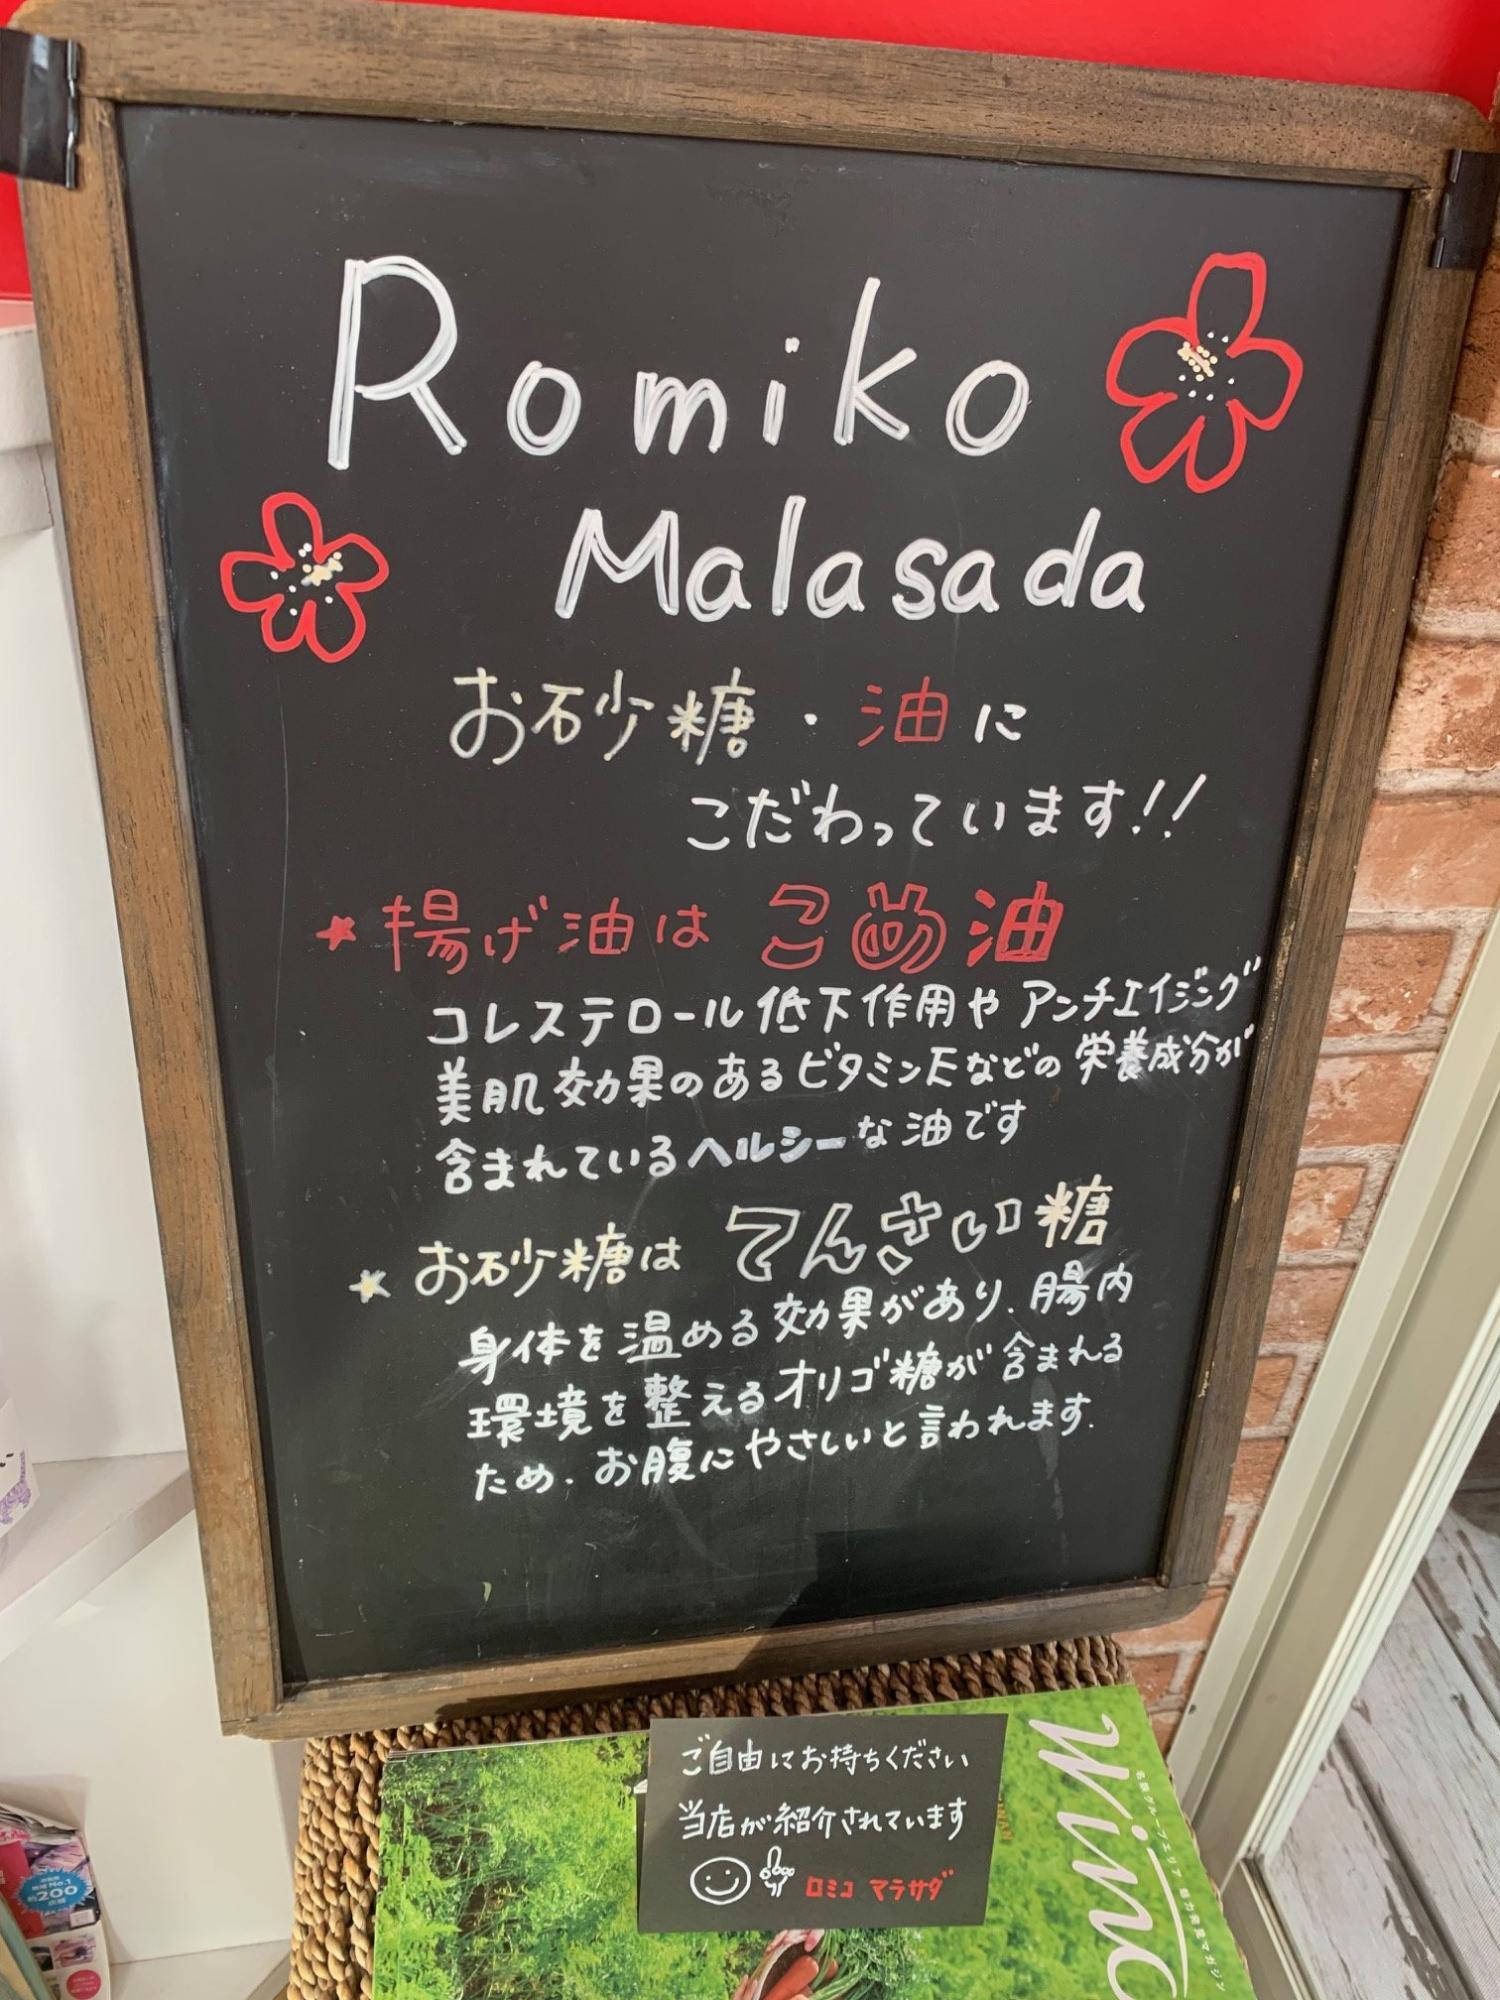 Romiko
Malasada
お砂糖・油に
こだわっています!!
★揚げ油は こめ油
コレステロール低下作用やアンチエイジング
美肌効果のあるビタミンEなどの栄養成分が
含まれているヘルシーな油です
★お砂糖は てんさい糖
身体を温める効果があり、腸内
環境を整えるオリゴ糖が含まれる
ため、お腹にやさしいと言われます.
ご自由にお持ちください
当店が紹介されています
ロミコ マラサダ
Wind
No.1
約200